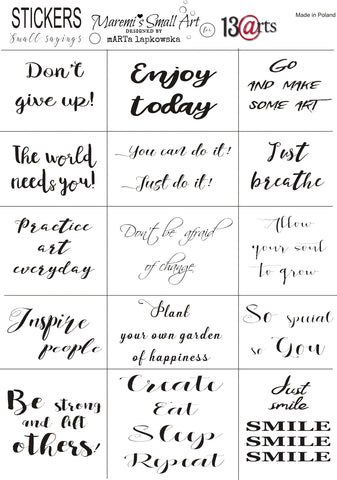 STICKERS
Small sayings
Maremi's Small Art
DESIGNED BY
mARTa lapkowska
for
13@rts
Made in Poland
Don't
give up!
Enjoy
today
Go
AND MAKE
SOME ART
The world
needs you!
You can do it!
Just do it!
Just
breathe
Practice
art
everyday
Don't be afraid
of change
Allow
your soul
to grow
Inspire
people
Plant
your own garden
of happiness
So special
so You
Be strong
and lift
others!
Create
Eat
Sleep
Repeat
Just
smile
SMILE
SMILE
SMILE